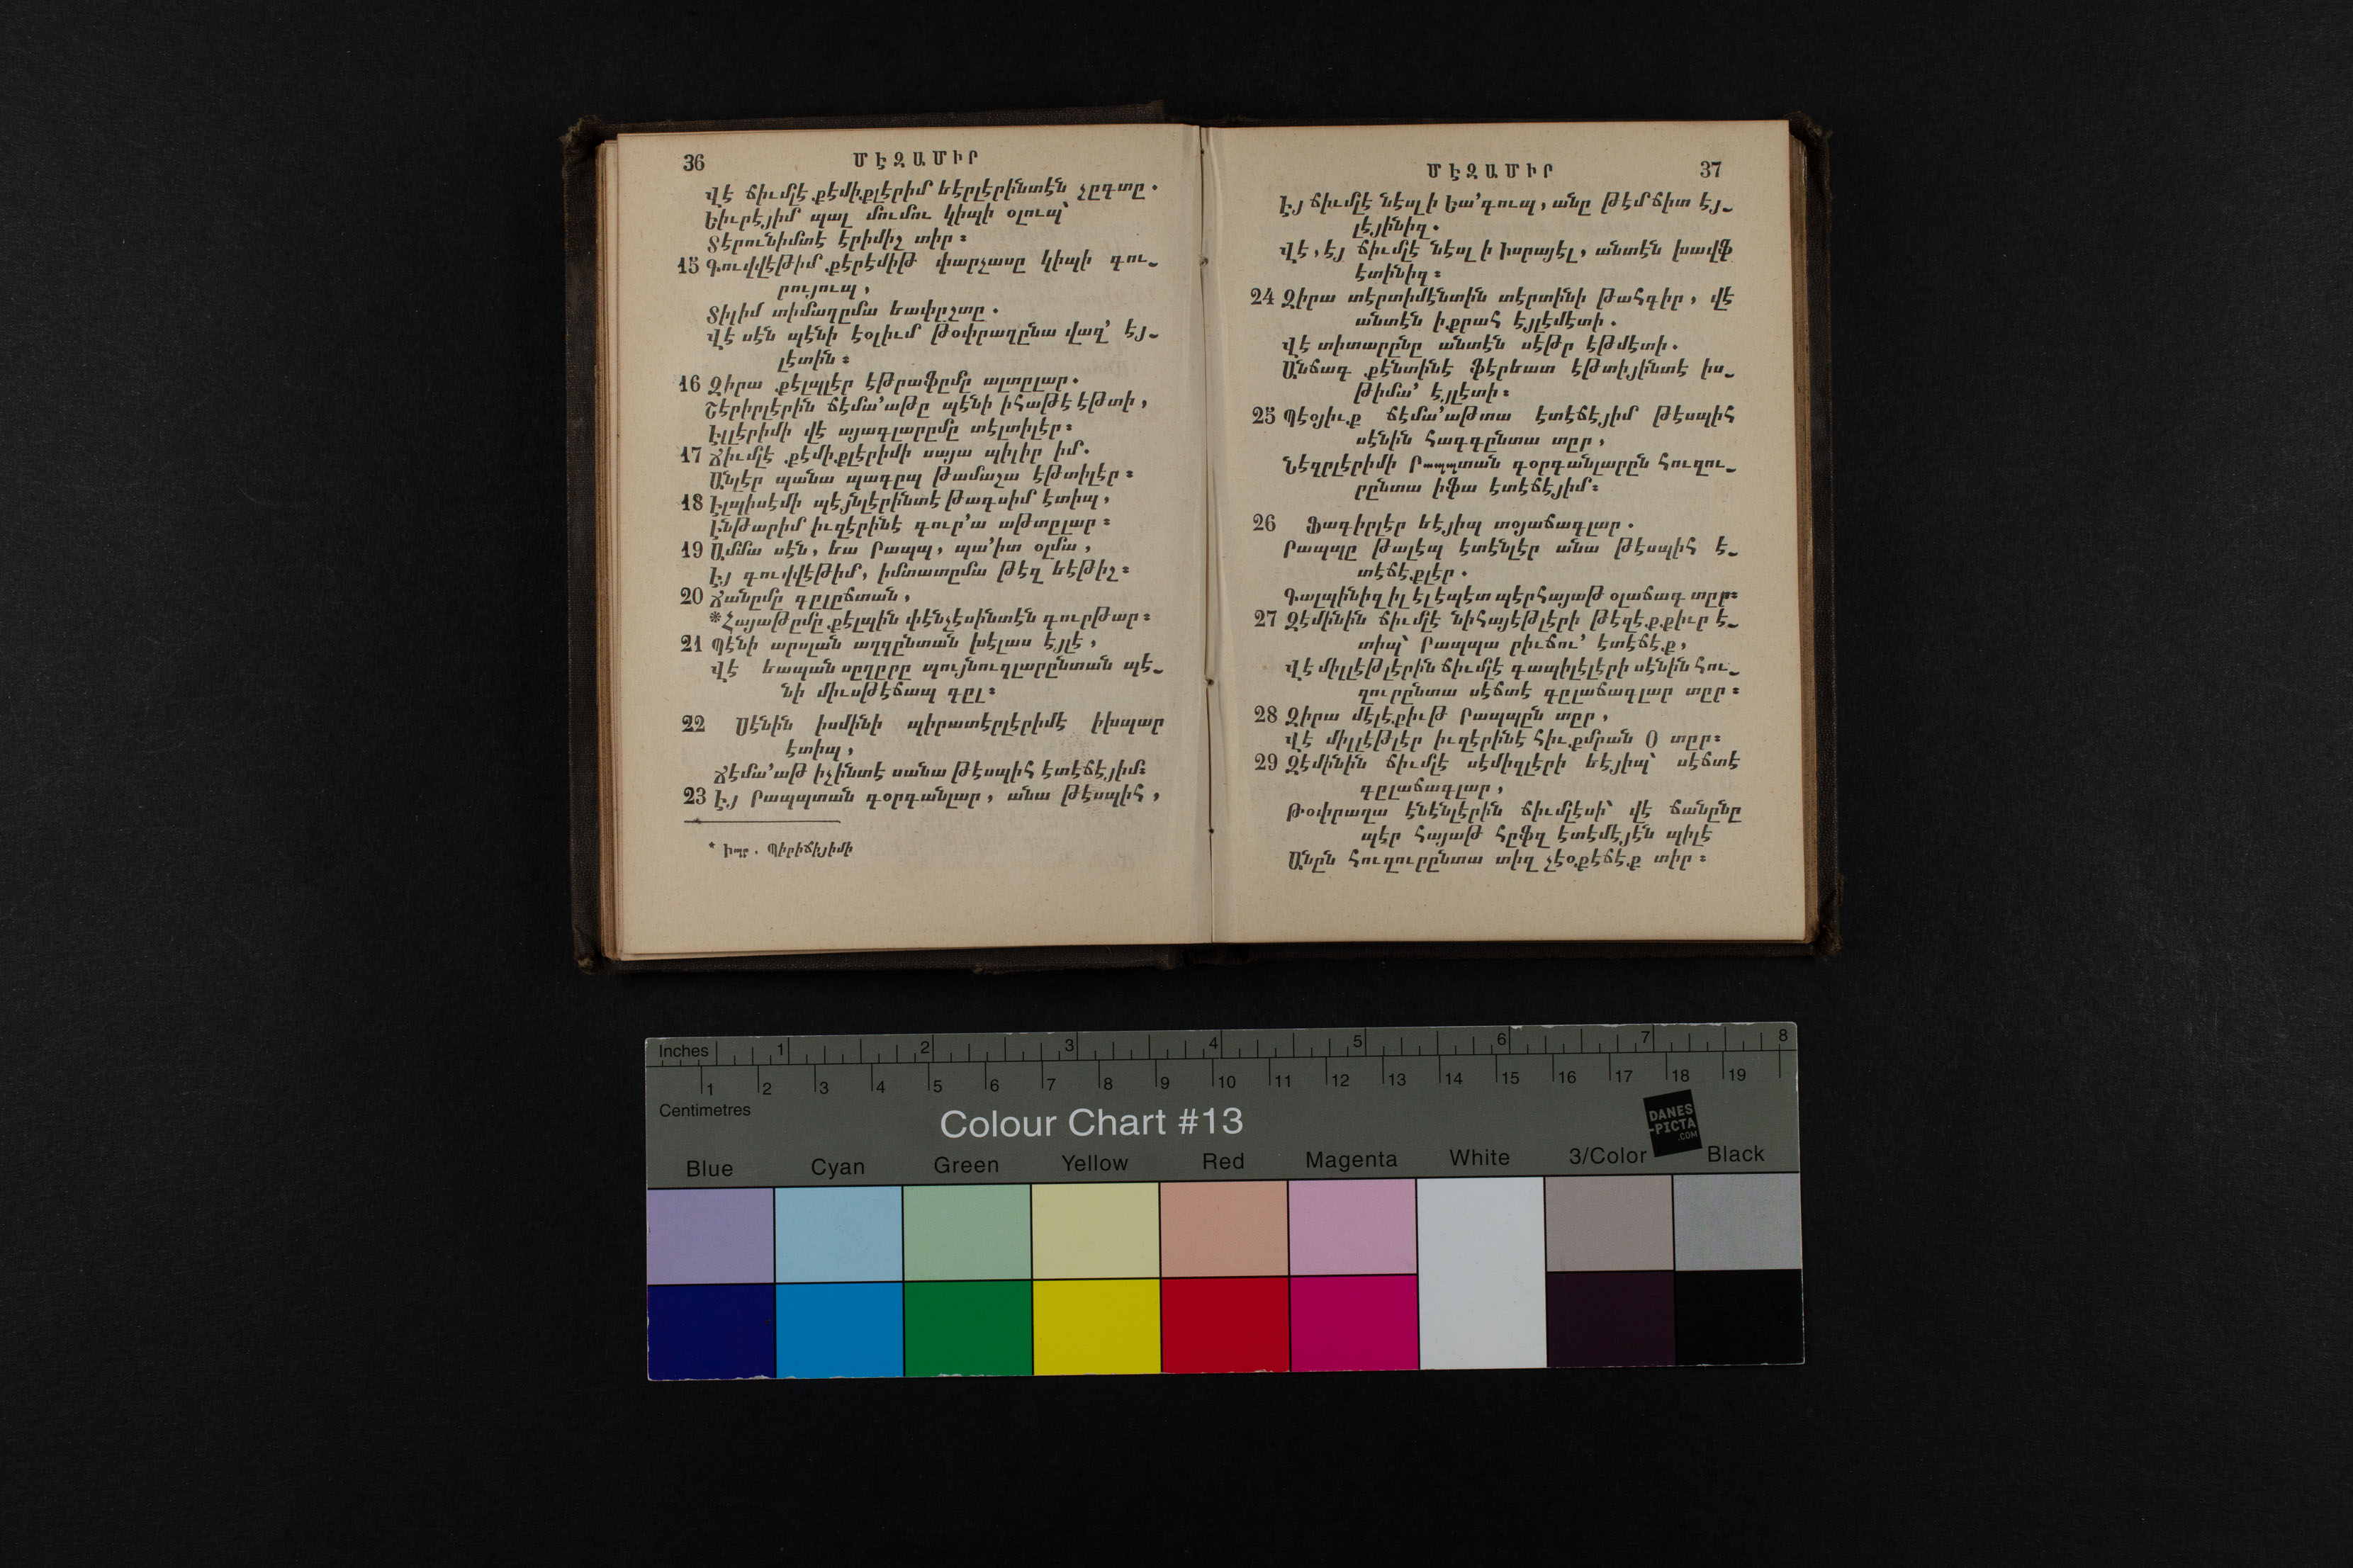 36 ՄԷԶԱՄԻՐ
Վէ ճիւմլէ քէմիքլէրիմ եէրլէրինտէն չըգտը.
Եիւրէյիմ պալ մումու կիպի օլուպ՝
Տէրունիմտէ էրիմիշ տիր։
15 Գուվվէթիմ քէրէմիթ փարչասը կիպի գու-
րույուպ,
Տիլիմ տիմաղըմա եափըշտը.
Վէ սէն պէնի էօլիւմ թօփրաղընա վազ՚ էյ-
լէտին։
16 Զիրա քէլպլէր էթրաֆըմը ալտըլար.
Շէրիրլէրին ճէմա՚աթը պէնի իհաթէ էթտի,
Էլլէրիմի վէ այագլարըմը տէլտիլէր։
17 Ճիւմլէ քէմիքլէրիմի սայա պիլիր իմ.
Անլէր պանա պագըպ թամաշա էթտիլէր։
18 Էլպիսէմի պէյնլէրինտէ թագսիմ էտիպ,
Էնթարիմ իւզէրինէ գուր՚ա աթտըլար։
19 Ամմա սէն, եա Րապպ, պա՚իտ օլմա,
Էյ գուվվէթիմ, իմտատըմա թէզ եէթիշ։
20 Ճանըմը գըլըճտան,
*Հայաթըմը քէլպին փէնչէսինտէն գուրթար։
21 Պէնի արսլան աղզընտան խէլաս էյլէ,
Վէ եապան սըղըրը պույնուզլարընտան պէ-
նի միւսթէճապ գըլ։
22 Սէնին իսմինի պիրատէրլէրիմէ իխպար
էտիպ,
Ճէմա՚աթ իչինտէ սանա թէսպիհ էտէճէյիմ։
23 Էյ Րապպտան գօրգանլար, անա թէսպիհ,
* Իպր. Պիրիճիյիմի
ՄԷԶԱՄԻՐ 37
Էյ ճիւմլէ նէսլ ի Եա՚գուպ, անը թէմճիտ էյ-
լէյինիզ.
Վէ, էյ ճիւմլէ նէսլ ի Իսրայէլ, անտէն խավֆ
էտինիզ։
24 Զիրա տէրտիմէնտին տէրտինի թահգիր, վէ
անտէն իքրահ էյլէմէտի.
Վէ տիտարընը անտէն սէթր էթմէտի.
Անճագ քէնտինէ ֆէրեատ էթտիյինտէ իս-
թիմա՚ էյլէտի։
25 Պէօյիւք ճէմա՚աթտա էտէճէյիմ թէսպիհ
սէնին հագգընտա տըր,
Նէզրլէրիմի Րապպտան գօրգանլարըն հուզու-
րընտա իֆա էտէճէյիմ։
26 Ֆագիրլէր եէյիպ տօյաճագլար.
Րապպը թալէպ էտէնլէր անա թէսպիհ է-
տէճէքլէր.
Գալպինիզ իլ էլէպէտ պէրհայաթ օլաճագ տըր։
27 Զէմինին ճիւմլէ նիհայէթլէրի թէզէքքիւր է-
տիպ՝ Րապպա րիւճու՚ էտէճէք,
Վէ միլլէթլէրին ճիւմլէ գապիլէլէրի սէնին հու-
զուրընտա սէճտէ գըլաճագլար տըր։
28 Զիրա մէլէքիւթ Րապպըն տըր,
Վէ միլլէթլէր իւզէրինէ հիւքմրան Օ տըր։
29 Զէմինին ճիւմլէ սէմիզլէրի եէյիպ՝ սէճտէ
գըլաճագլար,
Թօփրաղա էնէնլէրին ճիւմլէսի՝ վէ ճանընը
պէր հայաթ հըֆզ էտէմէյէն պիլէ
Անըն հուզուրընտա տիզ չէօքէճէք տիր։
Inches 1 2 3 4 5 6 7 8
1 2 3 4 5 6 7 8 9 10 11 12 13 14 15 16 17 18 19
Centimetres
Colour Chart #13
DANES
-PICTA
.COM
Blue Cyan Green Yellow Red Magenta White 3/Color Black